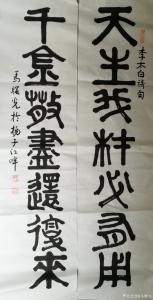 李太白诗句
天生我材必有用
千金散盡還復來
於揚子江畔